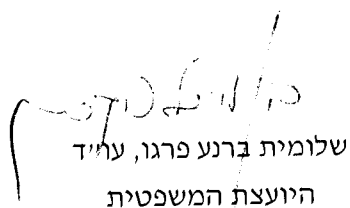 שלומית ברנע פרגו, עו״ד
היועצת המשפטית